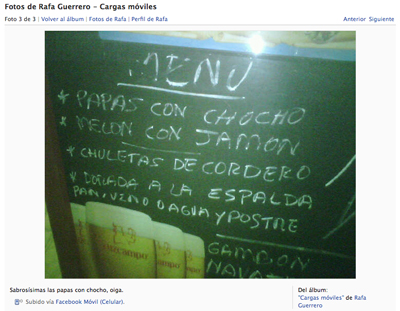 Fotos de Rafa Guerrero – Cargas móviles
Foto 3 de 3 | Volver al álbum | Fotos de Rafa | Perfil de Rafa
Anterior Siguiente
MENU
* PAPAS CON CHOCHO
* MELON CON JAMON
* CHULETAS DE CORDERO
* DORADA A LA ESPALDA
PAN, VINO O AGUA Y POSTRE
Sabrosísimas las papas con chocho, oiga.
Subido vía Facebook Móvil (Celular).
Del álbum:
"Cargas móviles" de Rafa
Guerrero